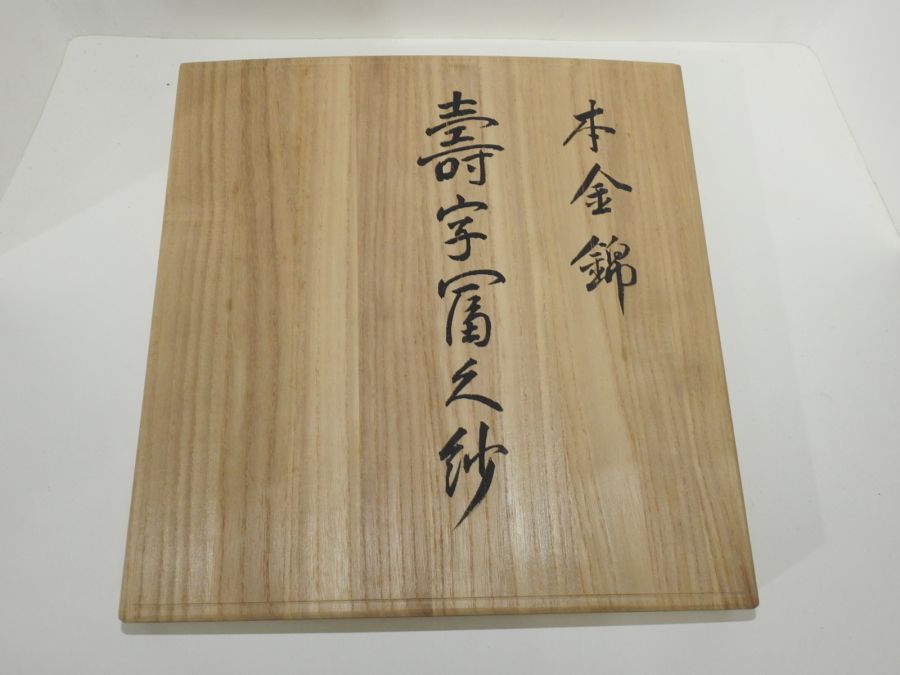 本金錦
壽字冨久紗